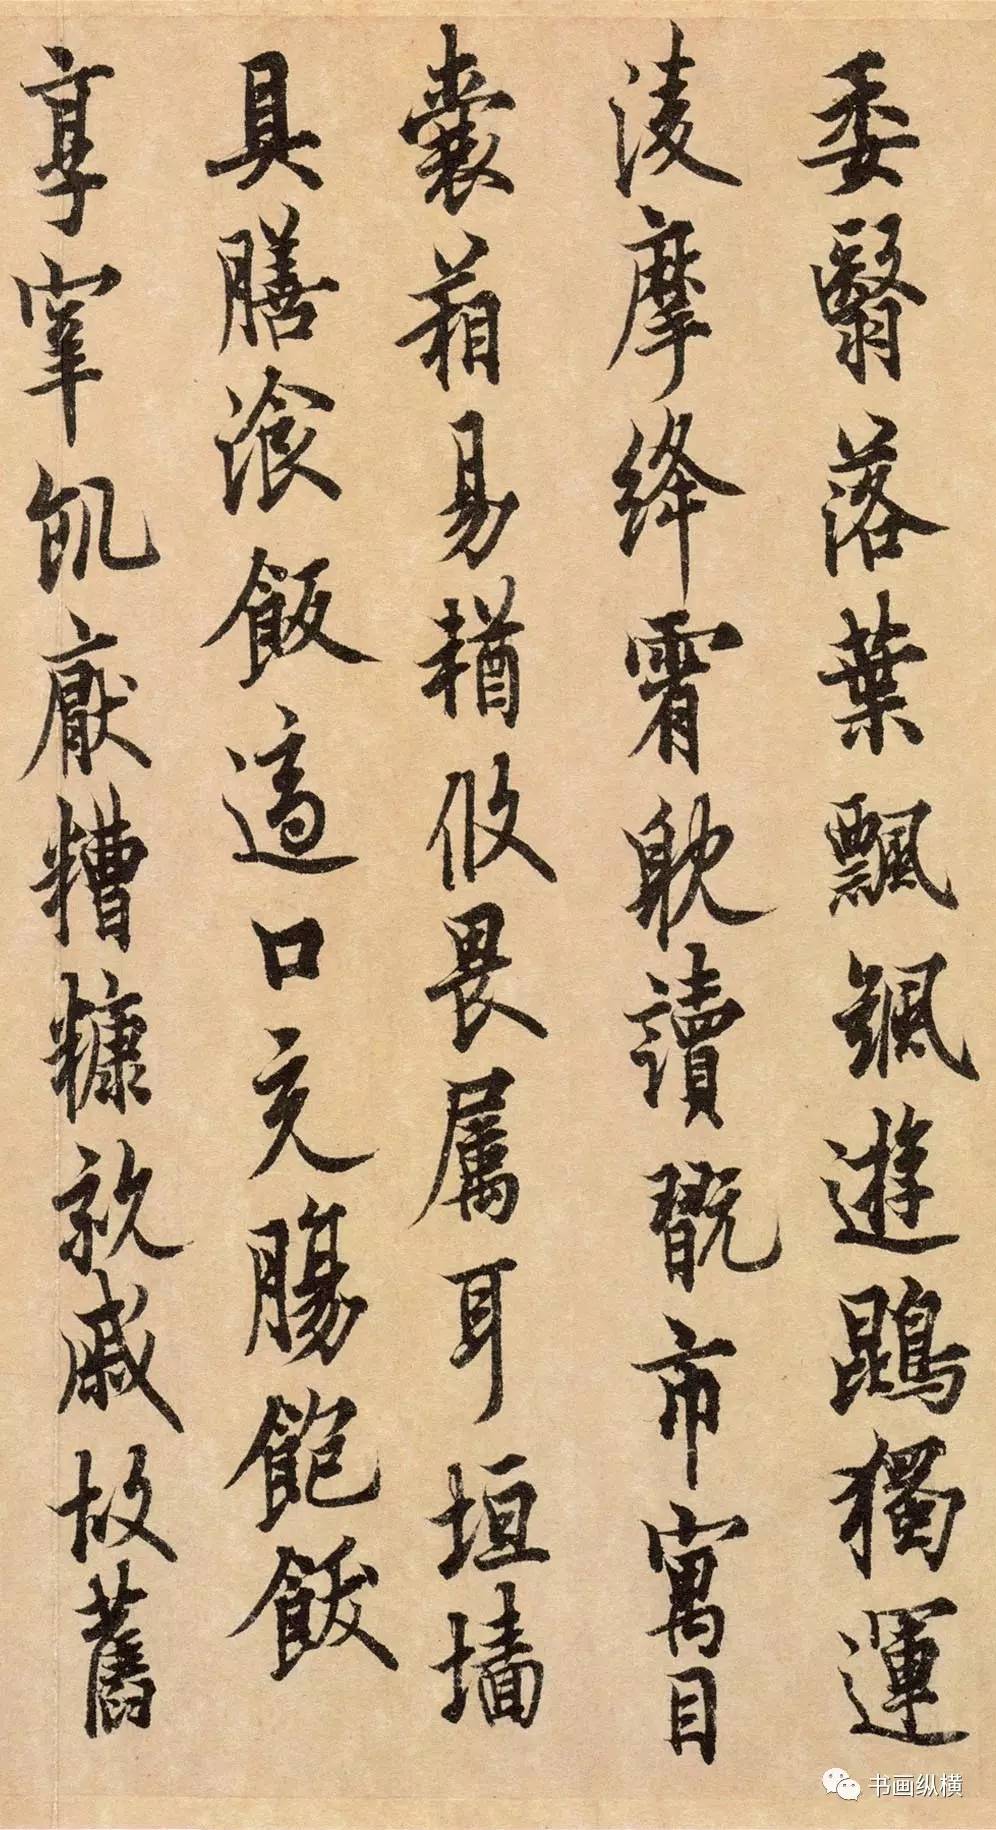 委翳落葉飄颻遊鵾獨運
淩摩絳霄耽讀翫市寓目
囊葙易輶攸畏属耳垣墙
具膳飡飯適口充腸飽飫
享宰飢厭糟糠親戚故舊
书画纵横